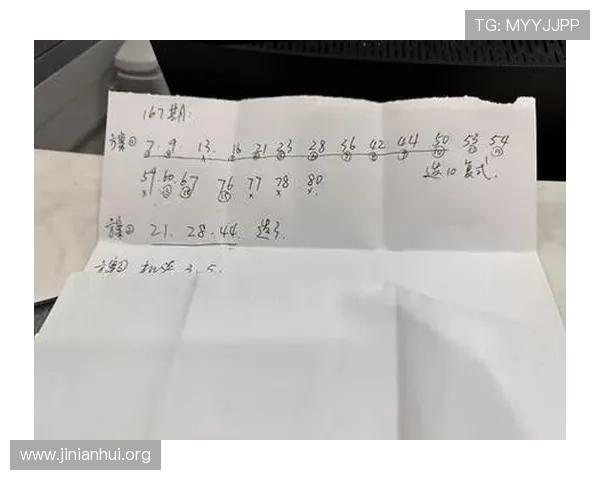 TG: MYYJJPP
167期:
方案① 7. 9. 13. 16 21 23 28 36 42 44 50 53 54
59. 60. 67 76 77 78 80 选10复式
方案② 21. 28. 44. 选3.
方案③ 机选 3. 5.
www.jinianhui.org